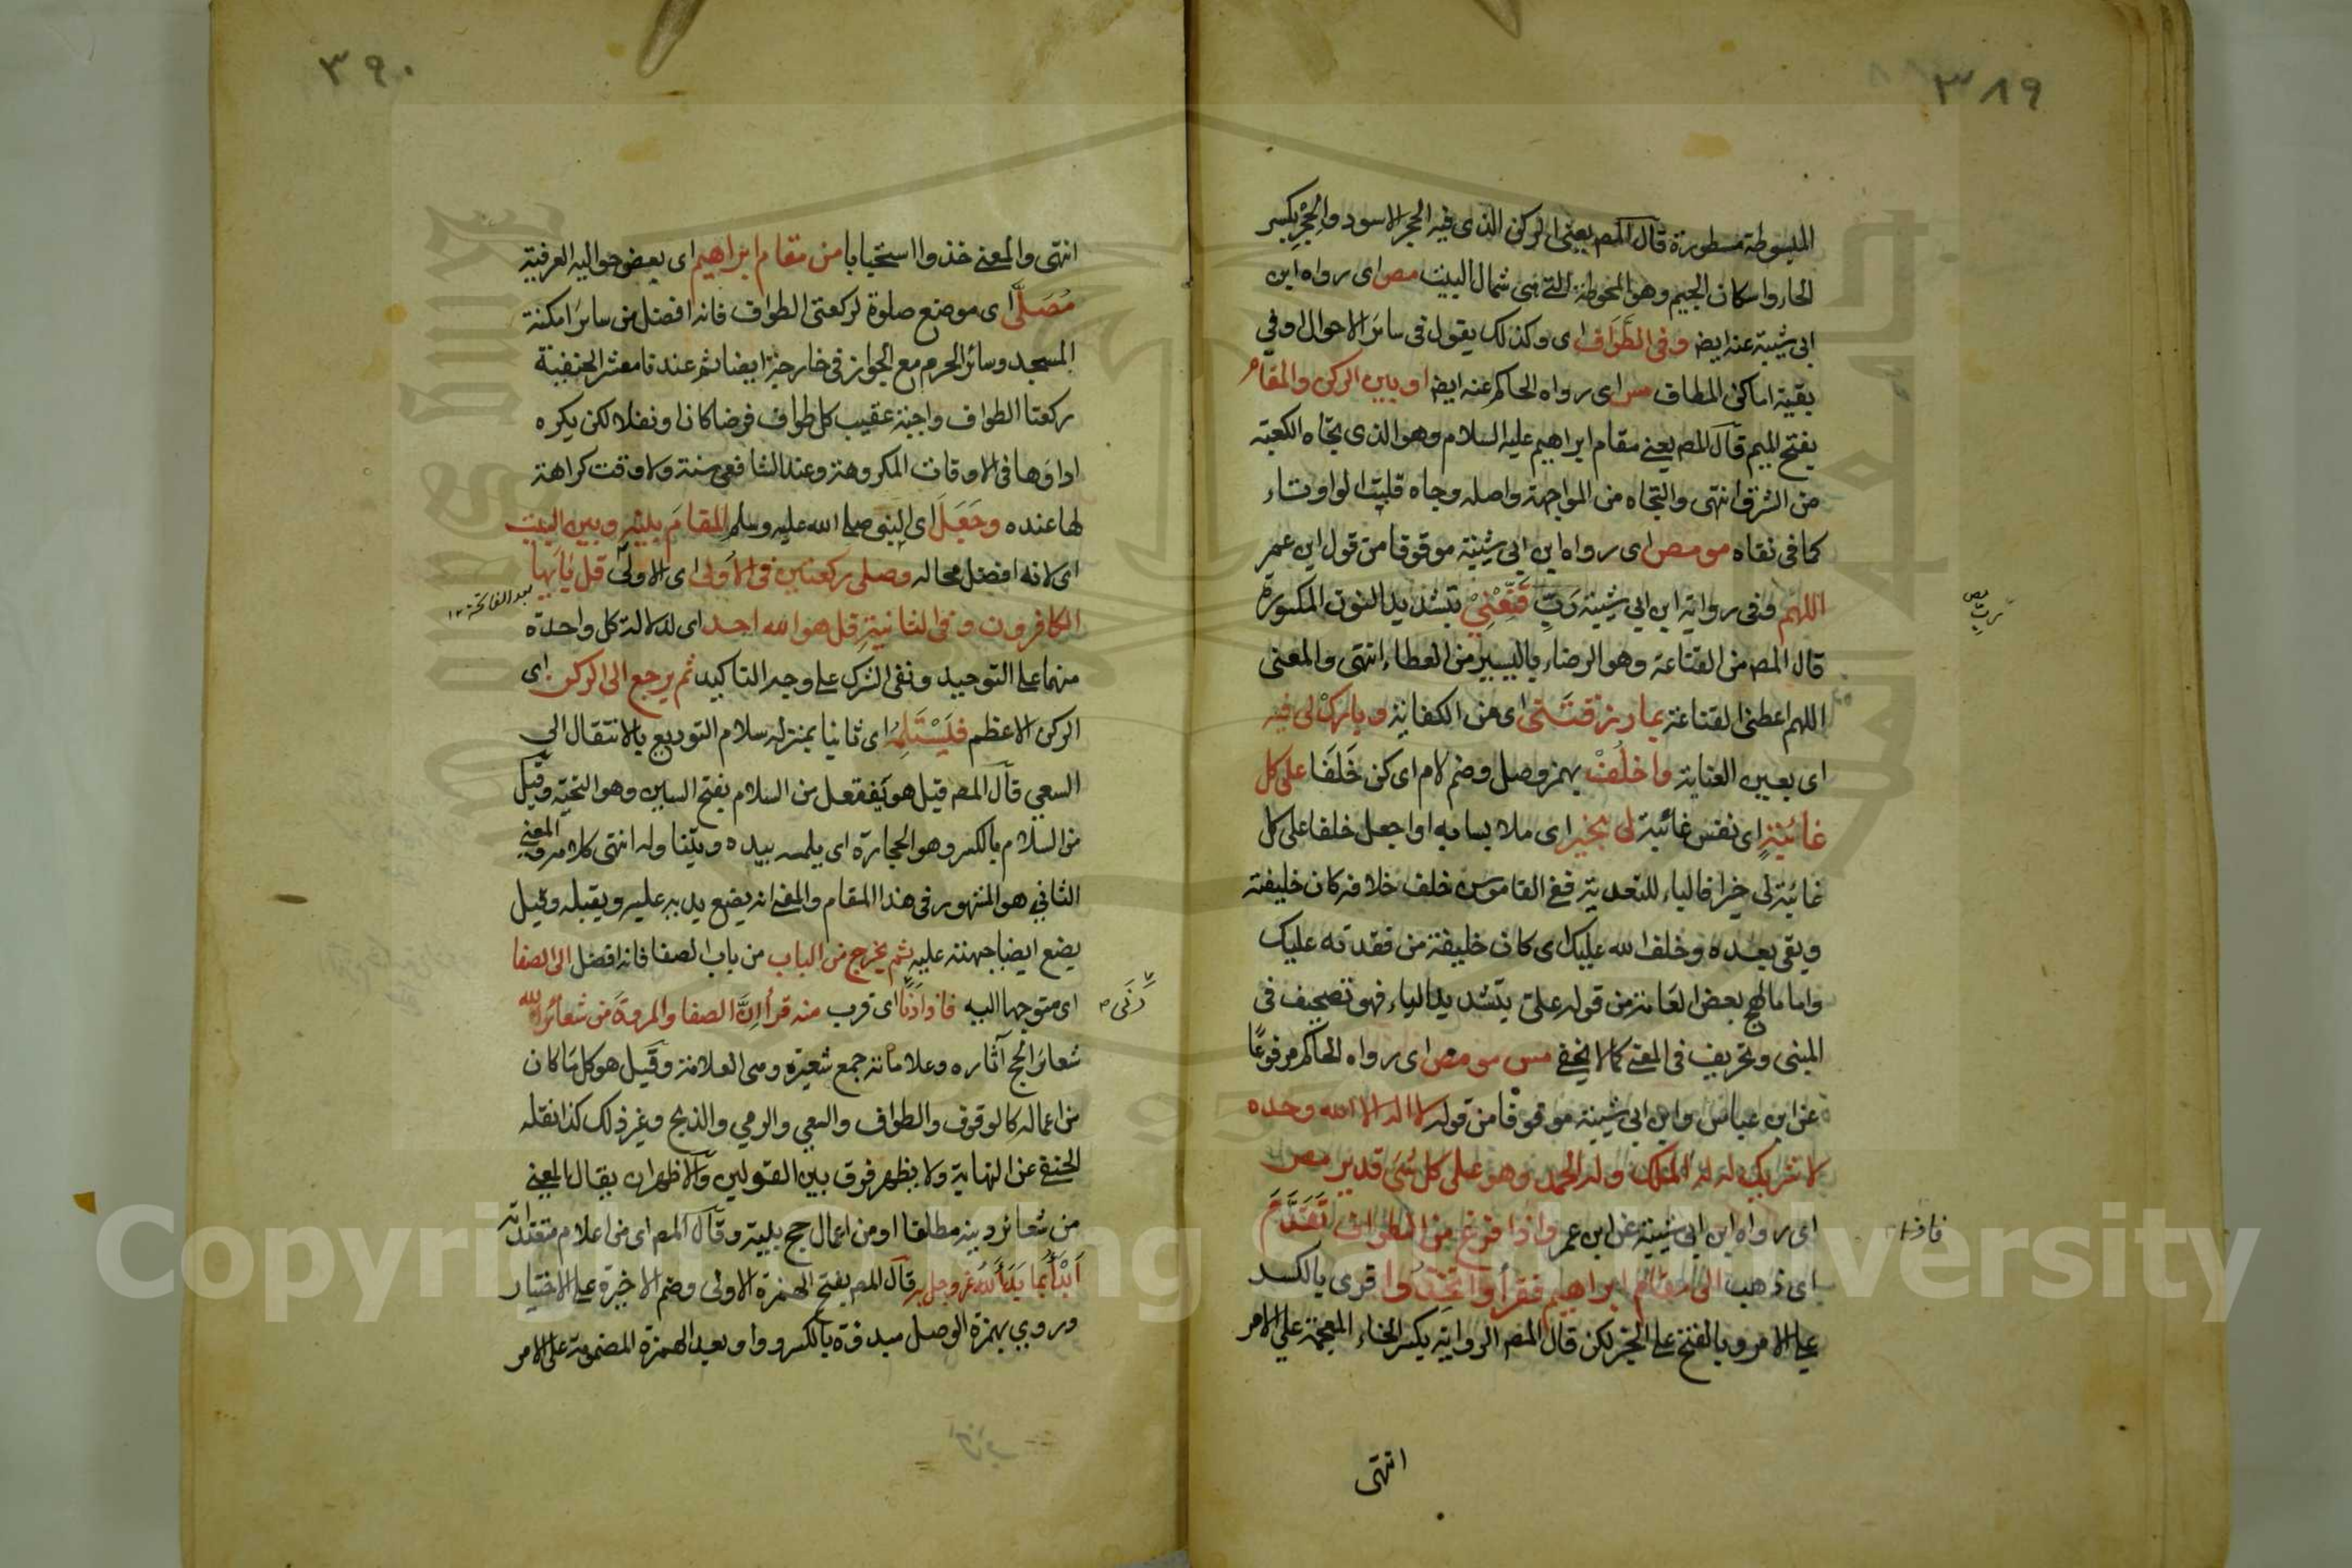 ٣٨٩
المبسوطة مسطورة قال المص يعنى الركن الذى فيه الحجر الاسود والحِجْرِ بكسر
الحاء واسكان الجيم وهو المحوطة التى فى شمال البيت مص اى رواه ابن
ابى شيبة عنه ايضا وفى الطَّوَاف اى وكذلك يقول فى سائر الاحوال او فى
بقية اماكن المطاف مس اى رواه الحاكم عنه ايضا او بين الركن والمقام
بفتح الميم قال المص يعنى مقام ابراهيم عليه السلام وهو الذى تجاه الكعبة
من الشرق انتهى والتجاه من المواجهة واصله وجاه قلبت الواو تاء
كما فى تقاه مو مص اى رواه ابن ابى شيبة موقوفا من قول ابن عمر
اللهم وفى رواية ابن ابى شيبة رَبِّ قَنِّعْنِيْ بتشديد النون المكسورة
ربِّ مص
قال المص من القناعة وهو الرضاء باليسير من العطاء انتهى والمعنى
اللهم اعطنى القناعة بما رزقتَنى اى من الكفاية وبارِكْ لى فيه
اى بعين العناية واخلُفْ بهمز وصل وضم لام اى كن خَلَفا على كل
غائبةٍ اى نفس غائبة لى بخير اى ملابسا به او اجعل خلفا على كل
غائبة لى خيرا فالباء للتعدية ففى القاموس خلف خلافه كان خليفته
وبقى بعده وخلف الله عليك اى كان خليفة من فقدته عليك
واما ما لهج بعض العامة من قوله علىّ بتشديد الياء فهو تصحيف فى
المبنى وتحريف فى المعنى كما لا يخفى مس مو مص اى رواه الحاكم مرفوعًا
عن ابن عباس وابن ابى شيبة موقوفا من قوله لا اله الا الله وحده
لا شريك له له الملك وله الحمد وهو على كل شئ قدير مص
اى رواه ابن ابى شيبة عن ابن عمر واذا فرغ من الطواف تَقَدَّمَ
فاذا
اى ذهب الى مقام ابراهيم فقرأ واتخِذُوا قرى بالكسر
على الامر وبالفتح على الخبر لكن قال المص الرواية بكسر الخاء المعجمة على الامر
انتهى
٣٩٠
انتهى والمعنى خذوا استحبابا من مقام ابراهيم اى بعض حواليه العرفية
مُصَلًّى اى موضع صلوة لركعتى الطواف فانه افضل من سائر امكنة
المسجد وسائر الحرم مع الجواز فى خارجة ايضا ثم عندنا معشر الحنفية
ركعتا الطواف واجبة عقيب كل طواف فرضا كان او نفلا لكن يكره
اداؤها فى الاوقات المكروهة وعند الشافعى سنة ولا وقت كراهة
لها عنده وجَعَلَ اى النبى صلى الله عليه وسلم المقامَ بينه وبين البيت
اى لانه افضل محاله وصلى ركعتين فى الاُولى اى الاولى قل يايها
بعد الفاتحة ١٢
الكافرون وفى الثانية قل هو الله احد اى لدلالة كل واحدة
منهما على التوحيد ونفى الشرك على وجه التاكيد ثم يرجع الى الركن اى
الركن الاعظم فليَسْتَلِمُه اى ثانيا بمنزلة سلام التوديع بالانتقال الى
السعى قال المص قيل هو يَفتعل من السلام بفتح السين وهو التحية وقيل
من السلام بالكسر وهو الحجارة اى يلمسه بيده ويتناوله انتهى كلامه والمعنى
الثانى هو المشهور فى هذا المقام والمعنى انه يضع يديه عليه ويقبله وقيل
يضع ايضا جبهته عليه ثم يخرج من الباب من باب الصفا فانه افضل الى الصفا
اى متوجها اليه فاذا دَنَا اى قرب منه قرأ اِنَّ الصفا والمروةَ من شعائر الله
دَنَى
شعائر الحج آثاره وعلاماته جمع شعيرة وهى العلامة وقيل هو كل ما كان
من اعماله كالوقوف والطواف والسعى والرمى والذبح وغير ذلك كذا نقله
الحنفى عن النهاية ولا يظهر فرق بين القولين والاظهر ان يقال المعنى
من شعائر دينه مطلقا او من اعمال حج بيته وقال المص اى من اعلام متعبداته
اَبْدَأُ بما بَدَأَ اللهُ عز وجل به قال المص بفتح الهمزة الاولى وضم الاخيرة على الاختيار
وروى بهمزة الوصل مبدوة بالكسر وواو بعد الهمزة المضمومة على الامر
Copyright © King Saud University